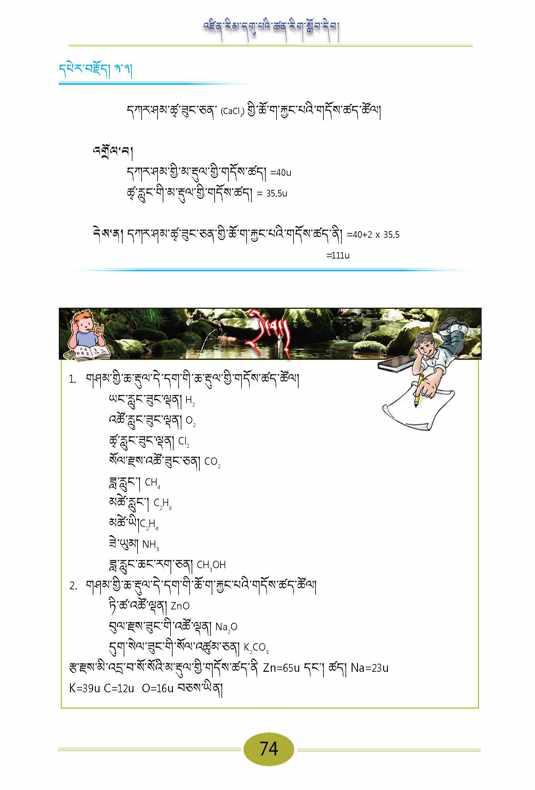 འཛིན་རིམ་དགུ་པའི་ཚན་རིག་སློབ་དེབ།
དཔེར་བརྗོད། ༡.༡།
དཀར་ཤམ་ཚྭ་ཟུང་ཅན་ (CaCl₂) གྱི་ཚོ་ག་རྐྱང་པའི་གདོས་ཚད་ཚོལ།
འགྲོལ་བ།
དཀར་ཤམ་གྱི་མ་རྡུལ་གྱི་གདོས་ཚད། =40u
ཚྭ་རླུང་གི་མ་རྡུལ་གྱི་གདོས་ཚད། = 35.5u
དེས་ན། དཀར་ཤམ་ཚྭ་ཟུང་ཅན་གྱི་ཚོ་ག་རྐྱང་པའི་གདོས་ཚད་ནི། =40+2 x 35.5
=111u
1. གཤམ་གྱི་ཆ་རྡུལ་དེ་དག་གི་ཆ་རྡུལ་གྱི་གདོས་ཚད་ཚོལ།
ཡང་རླུང་ཟུང་ལྡན། H₂
འཚོ་རླུང་ཟུང་ལྡན། O₂
ཚྭ་རླུང་ཟུང་ལྡན། Cl₂
སོལ་རྫས་འཚོ་ཟུང་ཅན། CO₂
ཟླ་རླུང་། CH₄
མཚེ་རླུང་། C₂H₆
མཚེ་ཡི།C₂H₄
ཟེ་ཡུམ། NH₃
ཟླ་རླུང་ཆང་རག་ཅན། CH₃OH
2. གཤམ་གྱི་ཆ་རྡུལ་དེ་དག་གི་ཚོ་ག་རྐྱང་པའི་གདོས་ཚད་ཚོལ།
ཏི་ཚ་འཚོ་ལྡན། ZnO
བུལ་རྫས་ཟུང་གི་འཚོ་ལྡན། Na₂O
དུག་སེལ་ཟུང་གི་སོལ་འཚུམ་ཅན། K₂CO₃
རྩ་རྫས་མི་འདྲ་བ་སོ་སོའི་མ་རྡུལ་གྱི་གདོས་ཚད་ནི Zn=65u དང་། ཚད། Na=23u
K=39u C=12u O=16u བཅས་ཡིན།
74